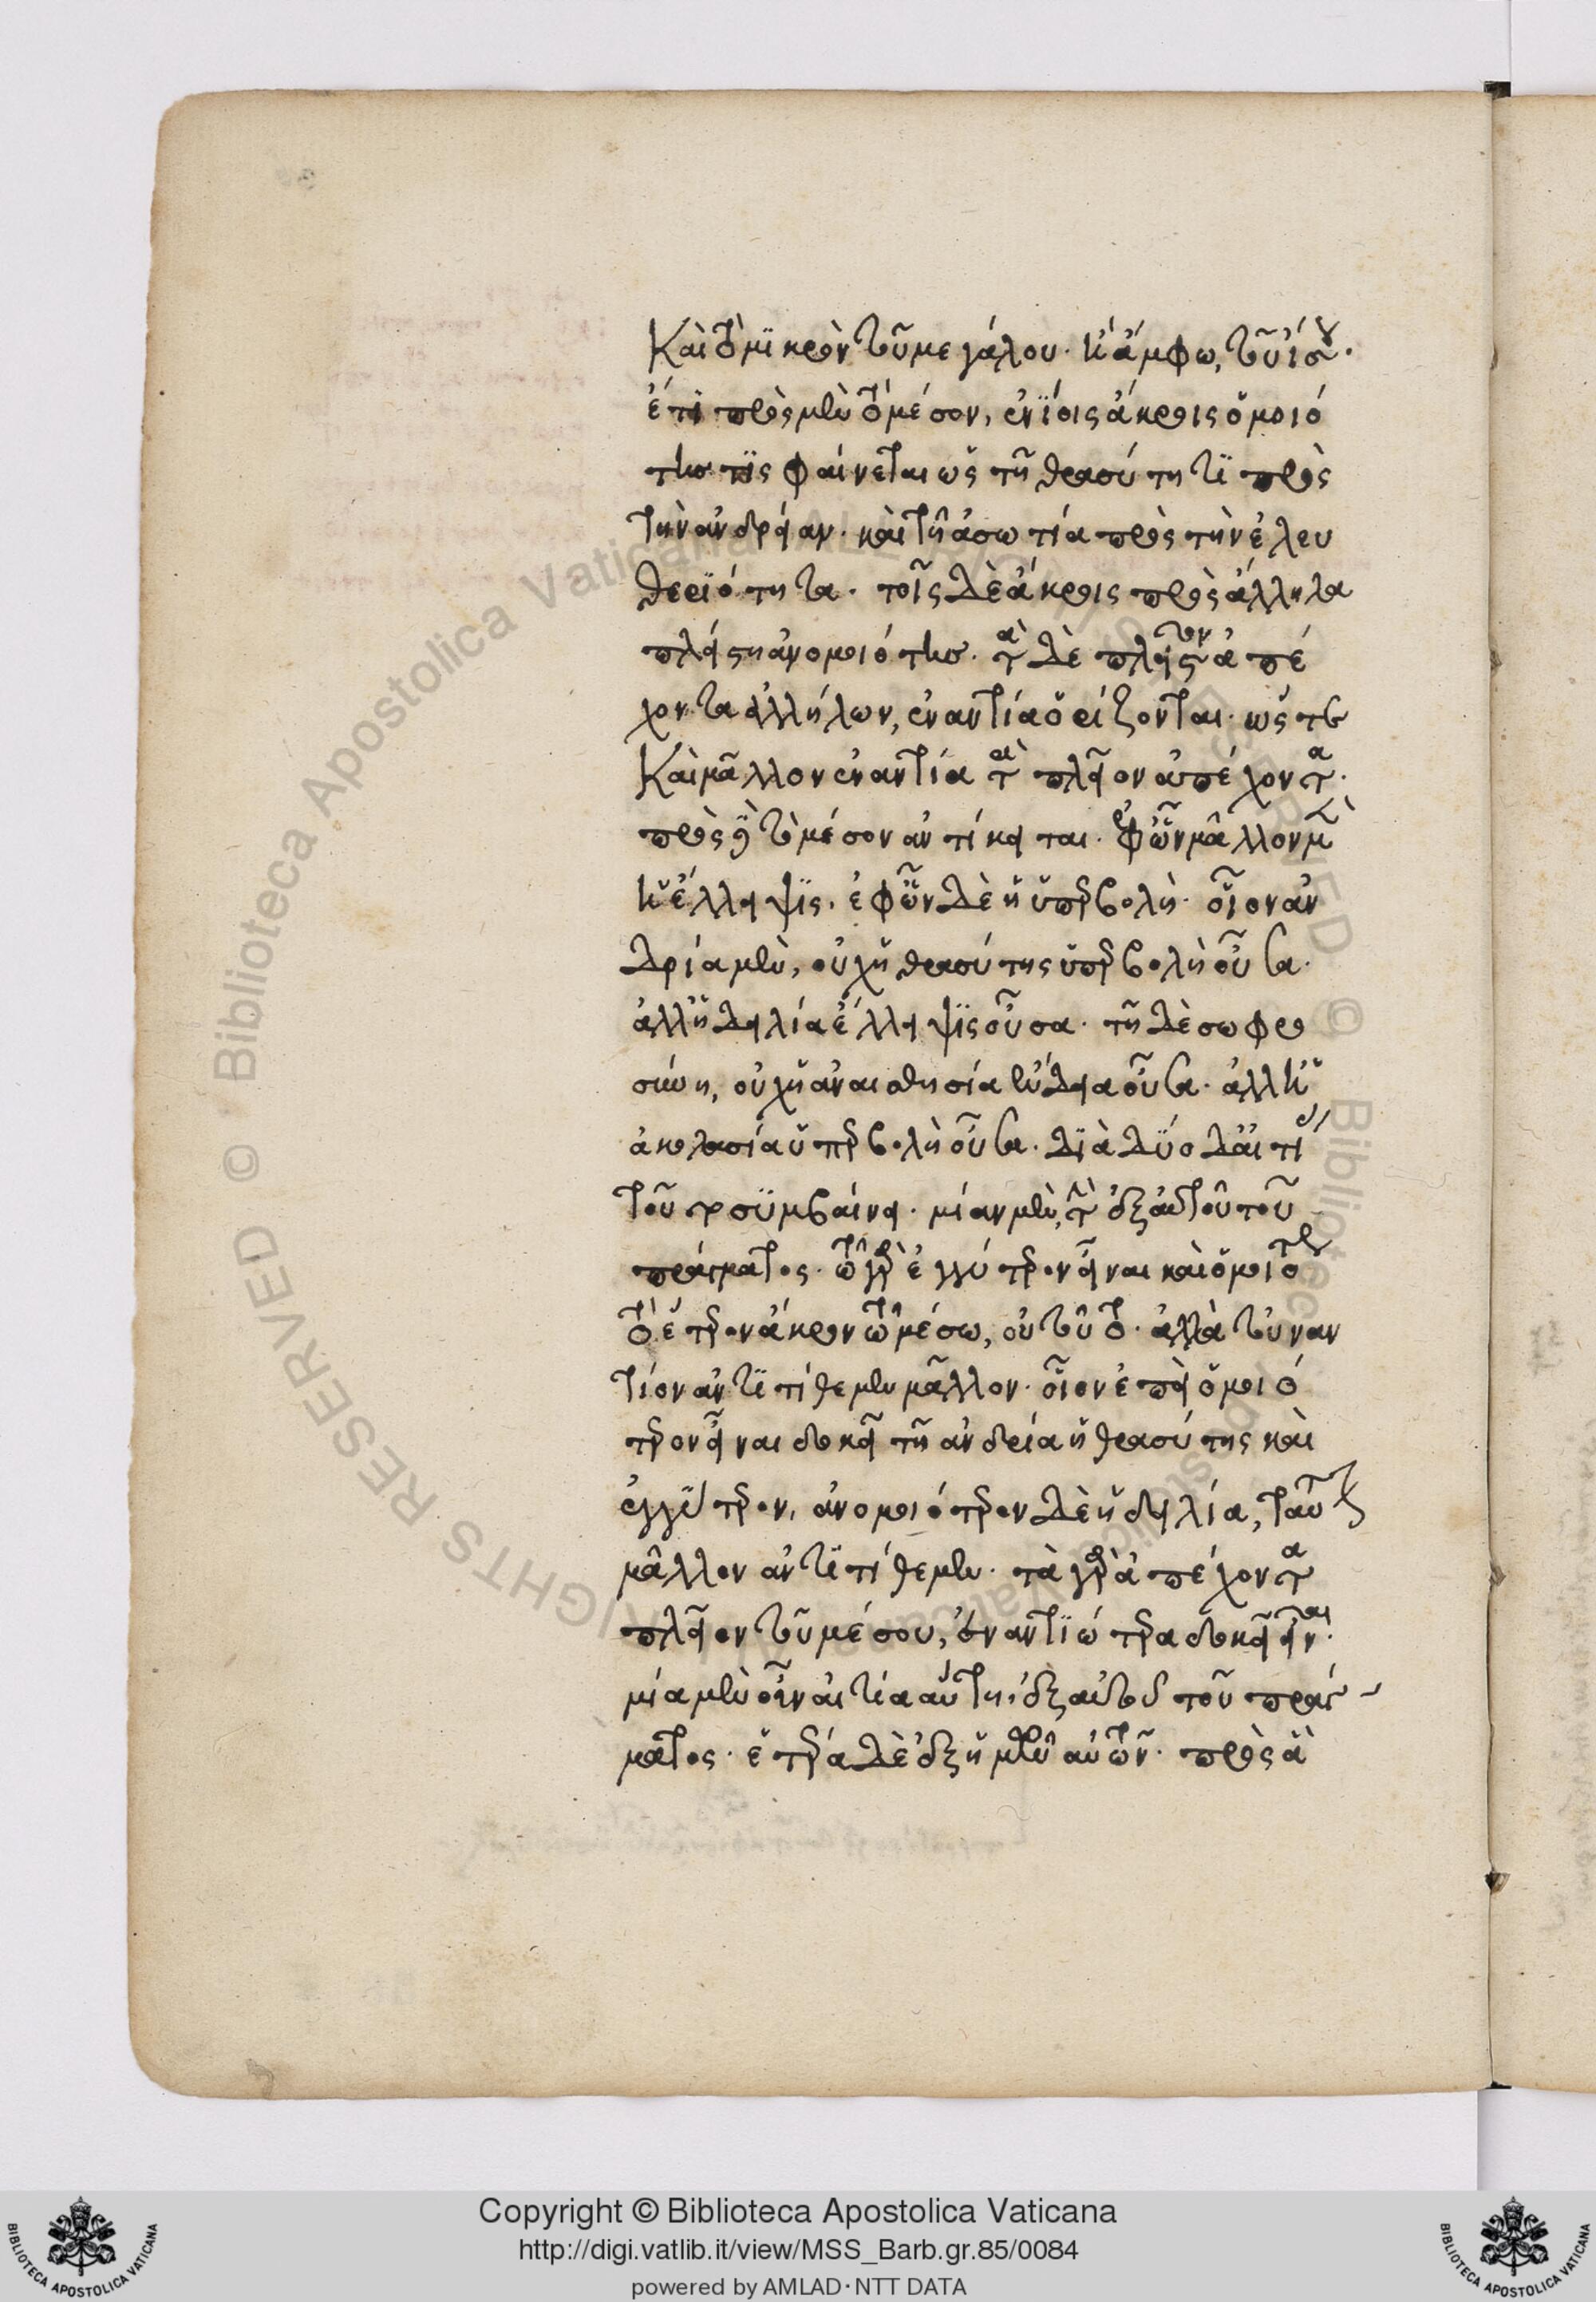 Καὶ τὸ μϊκρὸν τοῦ μεγάλου. καὶ ἄμφω, τοῦ ἴσου.
ἔτι πρὸς μὲν τὸ μέσον, ἐνΐοις ἄκροις ὁμοιό
της τϊς φαίνεται ὡς τῆ θρασύτητϊ πρὸς
τὴν ἀνδρείαν. καὶ τῆ ἀσωτία πρὸς τὴν ἐλευ
θερϊότητα. τοῖς δὲ ἄκροις πρὸς ἄλληλα
πλείστη ἀνομοιότης. τὰ δὲ πλεῖστον ἀπέ
χοντα ἀλλήλων, ἐναντία ὁρίζονται. ὥστε
Καὶ μᾶλλον ἐναντία τὰ πλεῖον ἀπέχοντα.
πρὸς δὲ τὸ μέσον ἀντίκειται. ἐφ ὧν μᾶλλον μὲν
ἡ ἔλλειψϊς. ἐφ ὧν δὲ ἡ ὑπερβολὴ. οἷον ἀν
δρία μὲν, οὐχ ἡ θρασύτης ὑπερβολὴ οὖσα.
ἀλλ ἡ δειλία ἔλλειψϊς οὖσα. τῆ δὲ σωφρο
σύνη, οὐχ ἡ ἀναισθησία ἔνδεια οὖσα. ἀλλ ἡ
ἀκολασία ὑπερβολὴ οὖσα. δϊὰ δύο δ αἰτίας
τοῦτο συμβαίνει. μίαν μὲν, τὴν ἐξ αὐτοῦ τοῦ
πράγματος. τῶ γὰρ ἐγγύτερον εἶναι καὶ ὁμοιότερον
τὸ ἕτερον ἄκρον τῶ μέσω, οὐ τοῦτο. ἀλλὰ τοὐναν
τίον ἀντϊτίθεμεν μᾶλλον. οἷον ἐπεὶ ὁμοιό
τερον εἶναι δοκεῖ τῆ ἀνδρία ἡ θρασύτης καὶ
ἐγγϋτερον, ἀνομοιότερον δὲ ἡ δειλία, ταύτην
μᾶλλον ἀντϊτίθεμεν. τὰ γὰρ ἀπέχοντα
πλεῖον τοῦ μέσου, ἐναντϊώτερα δοκεῖ εἶναι.
μία μὲν οὖν αἰτία αὕτη, ἐξ αὐτοῦ τοῦ πράγ-
ματος. ἑτέρα δὲ ἐξ ἡμῶν αὐτῶν. πρὸς ἃ
Copyright © Biblioteca Apostolica Vaticana
http://digi.vatlib.it/view/MSS_Barb.gr.85/0084
powered by AMLAD·NTT DATA